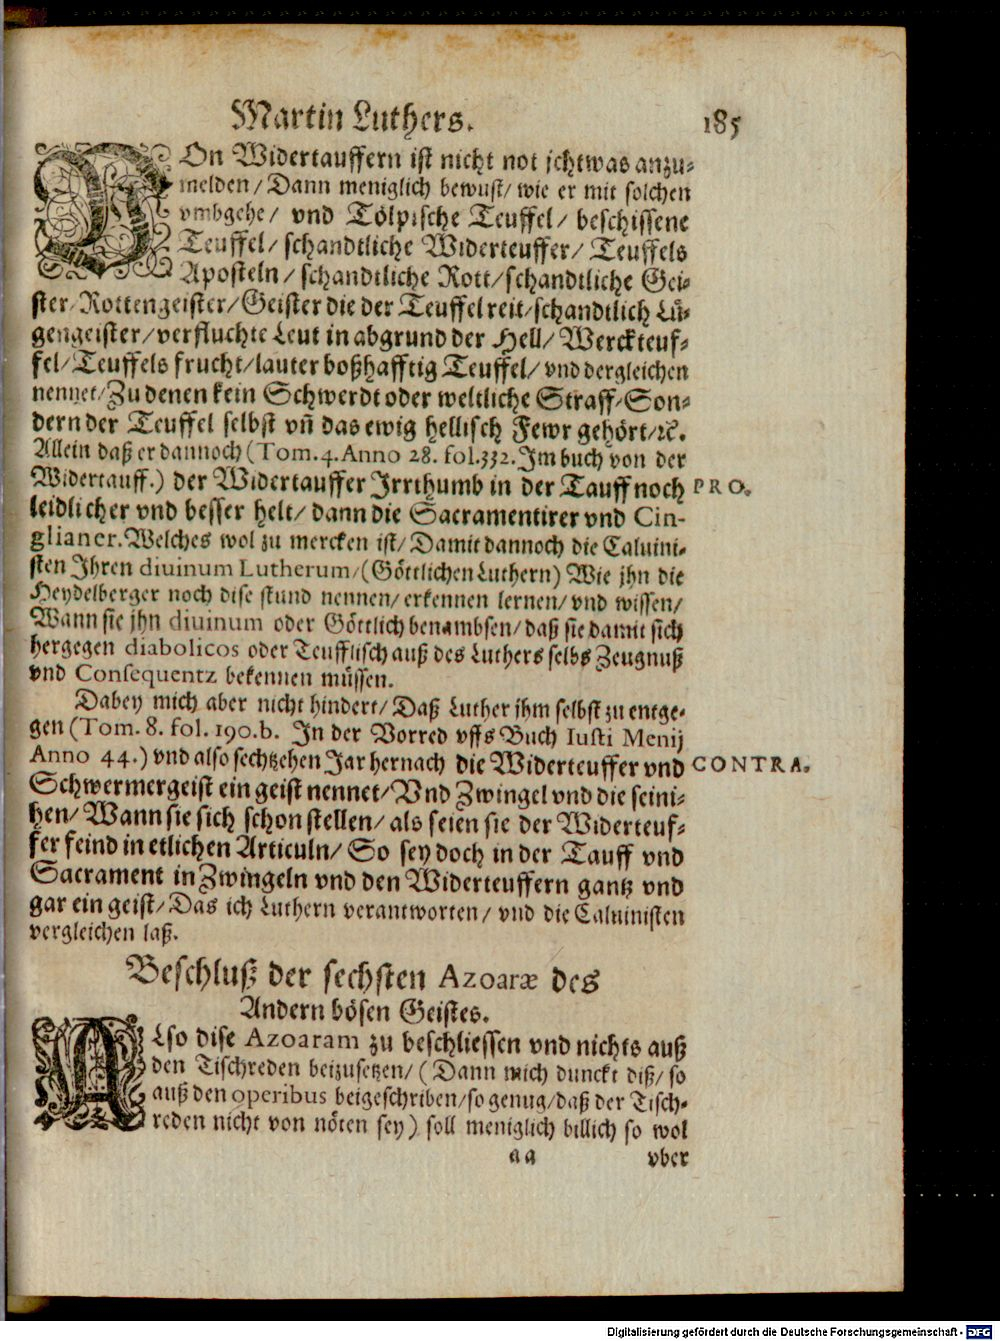 Martin Luthers. 185
VOn Widertauffern ist nicht not ichtwas anzu-
melden/ Dann meniglich bewust/ wie er mit solchen
vmbgehe/ vnd Tölpische Teuffel/ beschissene
Teuffel/ schandtliche Widerteuffer/ Teuffels
Aposteln/ schandtliche Rott/ schandtliche Gei-
ster/ Rottengeister/ Geister die der Teuffel reit/ schandtlich Lü-
gengeister/ verfluchte Leut in abgrund der Hell/ Werckteuf-
fel/ Teuffels frucht/ lauter boßhafftig Teuffel/ vnd dergleichen
nennet/ Zu denen kein Schwerdt oder weltliche Straff/ Son-
dern der Teuffel selbst vñ das ewig hellisch Fewr gehört/ ꝛc.
Allein daß er dannoch (Tom. 4. Anno 28. fol. 332. Im buch von der
Widertauff.) der Widertauffer Irrthumb in der Tauff noch PRO.
leidlicher vnd besser helt/ dann die Sacramentirer vnd Cin-
glianer. Welches wol zu mercken ist/ Damit dannoch die Caluini-
sten Ihren diuinum Lutherum/ (Göttlichen Luthern) Wie jhn die
Heydelberger noch dise stund nennen/ erkennen lernen/ vnd wissen/
Wann sie jhn diuinum oder Göttlich benambsen/ daß sie damit sich
hergegen diabolicos oder Teufflisch auß des Luthers selbs Zeugnuß
vnd Consequentz bekennen müssen.
Dabey mich aber nicht hindert/ Daß Luther jhm selbst zu entge-
gen (Tom. 8. fol. 190. b. In der Vorred vffs Buch Iusti Menij
Anno 44.) vnd also sechtzehen Jar hernach die Widerteuffer vnd CONTRA.
Schwermergeist ein geist nennet/ Vnd Zwingel vnd die seini-
hen/ Wann sie sich schon stellen/ als seien sie der Widerteuf-
fer feind in etlichen Articuln/ So sey doch in der Tauff vnd
Sacrament in Zwingeln vnd den Widerteuffern gantz vnd
gar ein geist/ Das ich Luthern verantworten/ vnd die Caluinisten
vergleichen laß.
Beschluß der sechsten Azoaræ des
Andern bösen Geistes.
ALso dise Azoaram zu beschliessen vnd nichts auß
den Tischreden beizusetzen/ (Dann mich dunckt diß/ so
auß den operibus beigeschriben/ so genug/ daß der Tisch-
reden nicht von nöten sey) soll meniglich billich so wol
aa vber
Digitalisierung gefördert durch die Deutsche Forschungsgemeinschaft - DFG